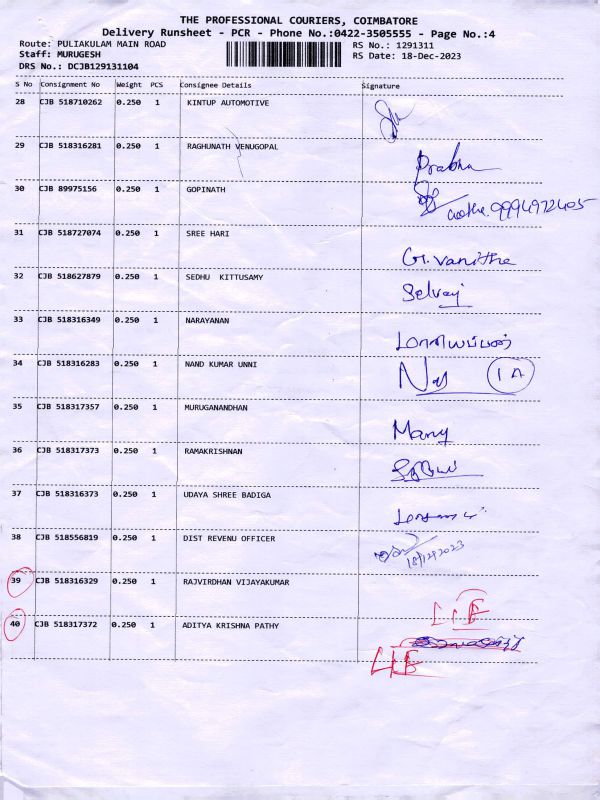 THE PROFESSIONAL COURIERS, COIMBATORE
Delivery Runsheet - PCR - Phone No.:0422-3505555 - Page No.:4
Route: PULIAKULAM MAIN ROAD RS No.: 1291311
Staff: MURUGESH RS Date: 18-Dec-2023
DRS No.: DCJB129131104
S No Consignment No Weight PCS Consignee Details Signature
28 CJB 518710262 0.250 1 KINTUP AUTOMOTIVE
29 CJB 518316281 0.250 1 RAGHUNATH VENUGOPAL
Prabha
30 CJB 89975156 0.250 1 GOPINATH
9994972405
31 CJB 518727074 0.250 1 SREE HARI
G. Vanitha
32 CJB 518627879 0.250 1 SEDHU KITTUSAMY
Selvaj
33 CJB 518316349 0.250 1 NARAYANAN
34 CJB 518316283 0.250 1 NAND KUMAR UNNI
1A
35 CJB 518317357 0.250 1 MURUGANANDHAN
Many
36 CJB 518317373 0.250 1 RAMAKRISHNAN
37 CJB 518316373 0.250 1 UDAYA SHREE BADIGA
38 CJB 518556819 0.250 1 DIST REVENU OFFICER
18/12/2023
39 CJB 518316329 0.250 1 RAJVIRDHAN VIJAYAKUMAR
40 CJB 518317372 0.250 1 ADITYA KRISHNA PATHY